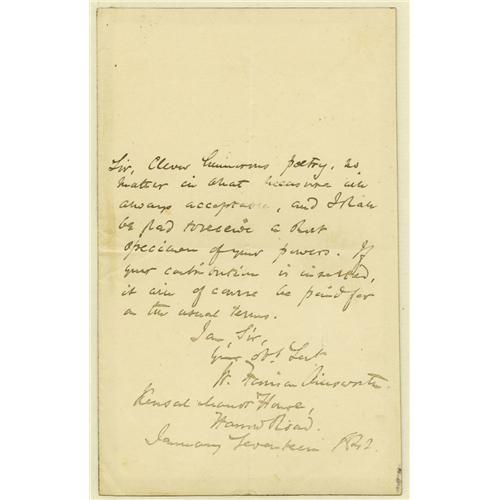 Sir, Clever humorous poetry, no
matter in what measure is
always acceptable, and I shall
be glad to receive a short
specimen of your powers. If
your contribution is inserted,
it will of course be paid for
on the usual terms.
I am, Sir,
Your obt Servt
W. Harrison Ainsworth
Kensal Manor House,
Harrow Road.
January Seventeen 1842.